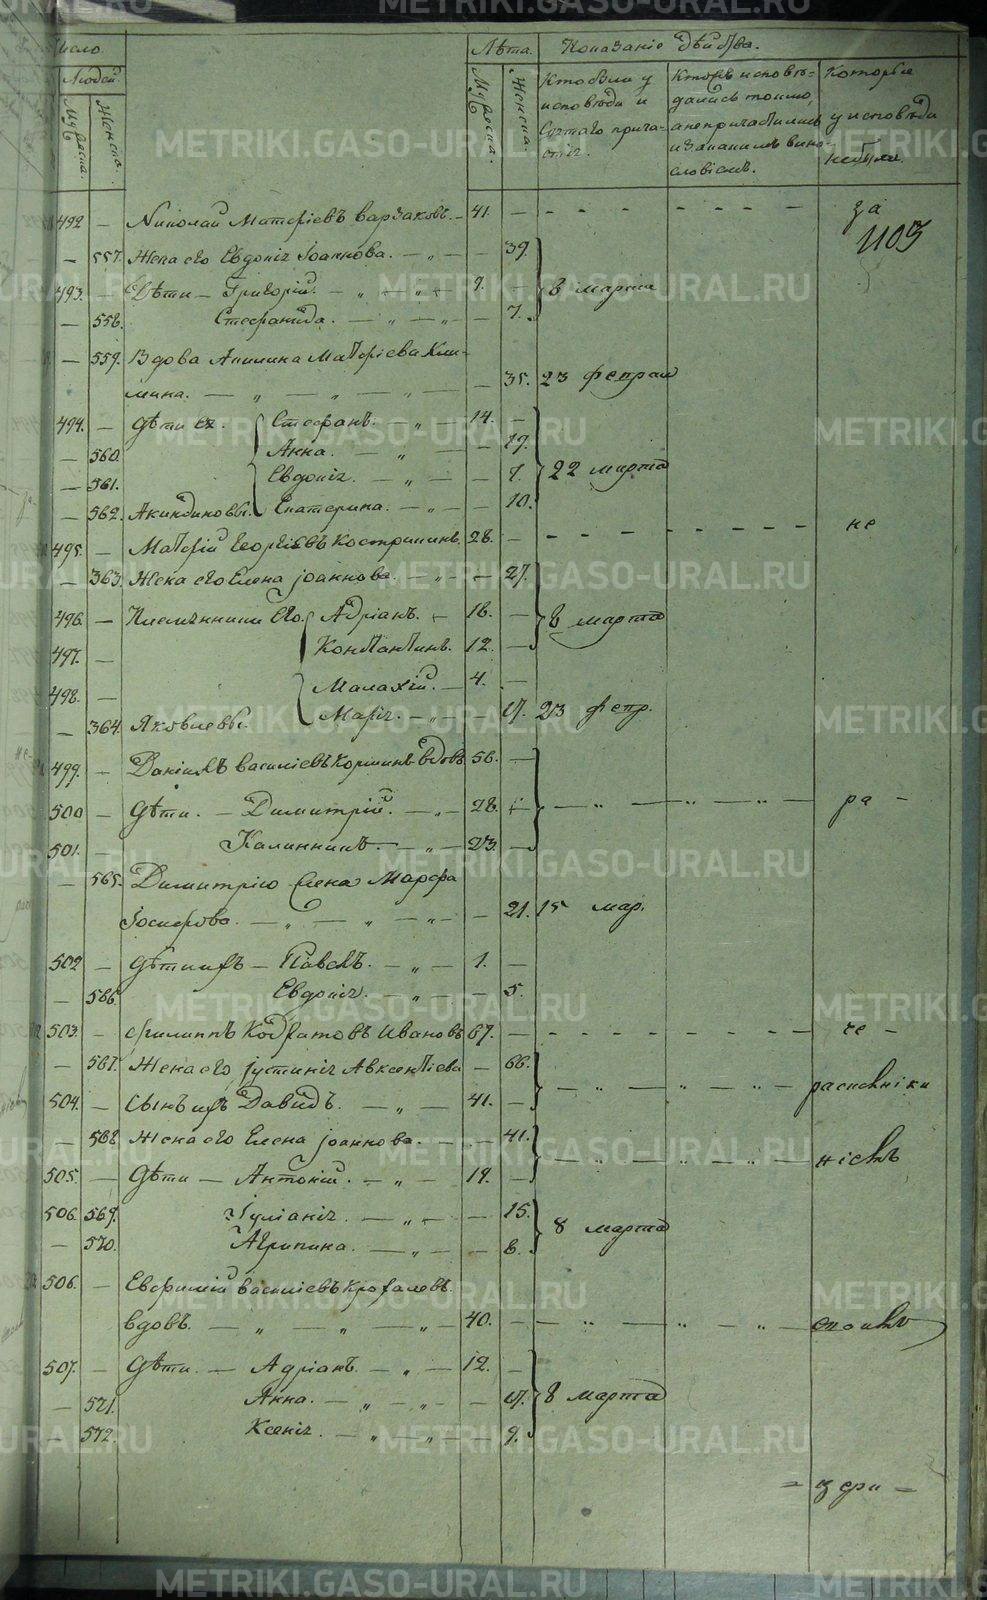 число
Людей
Мужеска.
Женска.
Лѣта. Показаніе дѣйства.
Мужеска.
Женска.
Кто были у исповѣди и Святаго причастія.
Кто исповѣдались токмо, а не причастились и за какимъ винословіемъ.
Которые у исповѣди не были.
492 — Николай Матфіевъ 41. — за
1103
— 557. Жена его Евдокія Іоаннова. — 39.
493. — Дѣти — Григорій. 9. — 8 марта
— 558. Стефанида. — 7.
— 559. Вдова Акилина Матфіева
мина. — 35. 23 феврал
494. — Дѣти ея. Стефанъ. 14. —
— 560. Анна. — 19.
— 561. Евдокія. — 7. 22 марта
— 562. Акиндиновы. Екатерина. — 10.
495. — Матфій Георгіевъ Костринъ 28. — не
— 363. Жена его Елена Іоаннова. — 27.
496. — Племянники Его. Адріанъ. 16. — 8 марта
497. — Константинъ. 12. —
498. — Малахій. 4. —
— 364. Яковлевы. Марія. — 17. 23 февр.
499. — Даніилъ Василіевъ вдовъ 56. —
500 — Дѣти. — Димитрій. 28. — ра —
501. — Калинникъ. 23. —
— 565. Димитрію жена Марфа
Іосифова. — 21. 15 мар.
502 — Дѣти ихъ — Павелъ. 1. —
— 566. Евдокія. — 5.
503. — Филиппъ Кодратовъ Ивановъ 67. —
— 567. Жена его Іустинія Авксентіева — 66. раскольники
504. — Сынъ ихъ Давидъ. 41. —
— 568 Жена его Елена Іоаннова. — 41.
505. — Дѣти — Антоній. 19. —
506. 569. Іуліанія. — 15. 8 марта
— 570. Агрипина. — 8.
506. — Евфимій Василіевъ
вдовъ. 40. —
507. — Дѣти. — Адріанъ. 12. —
— 571. Анна. — 17. 8 марта
— 572. Ксенія. — 9.
METRIKI.GASO-URAL.RU